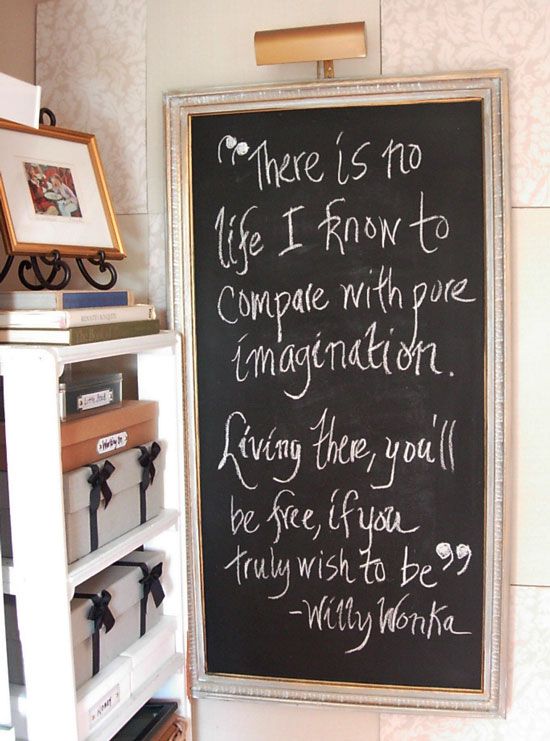 “There is no
life I know to
compare with pure
imagination.
Living there, you'll
be free, if you
truly wish to be”
-Willy Wonka
Working On